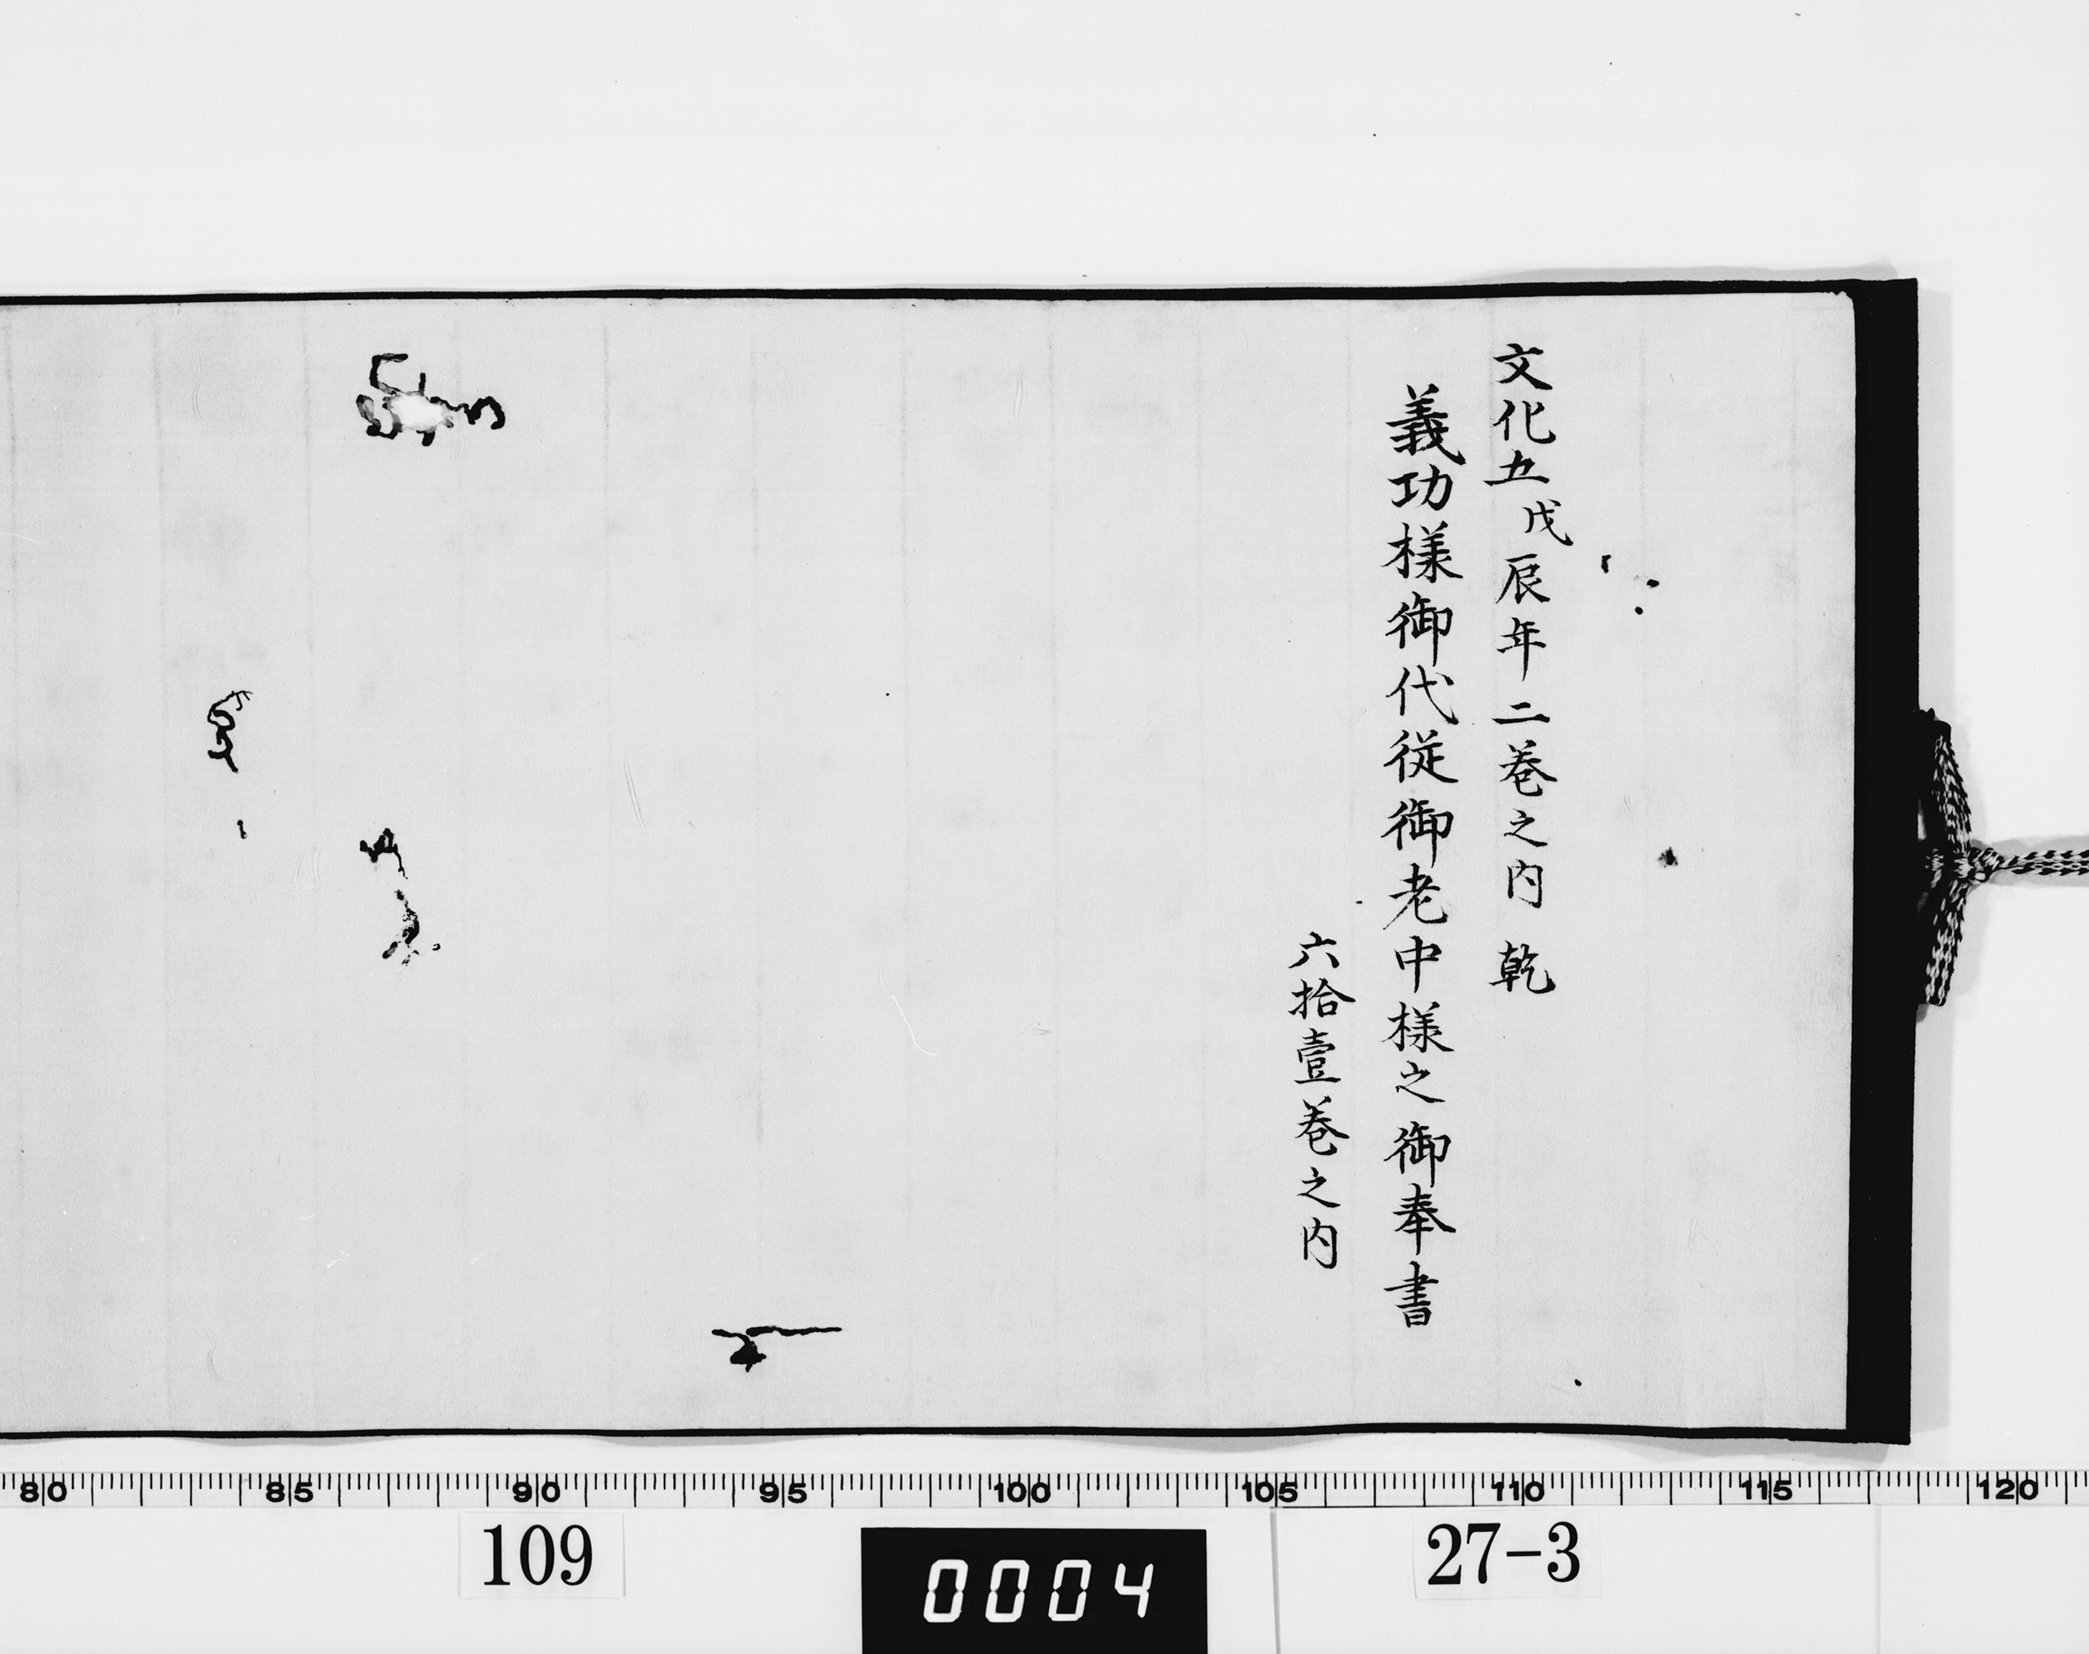 文化五戊辰年二巻之内 乾
義功様御代従御老中様之御奉書
六拾壹巻之内
80 85 90 95 100 105 110 115 120
109
0004
27-3